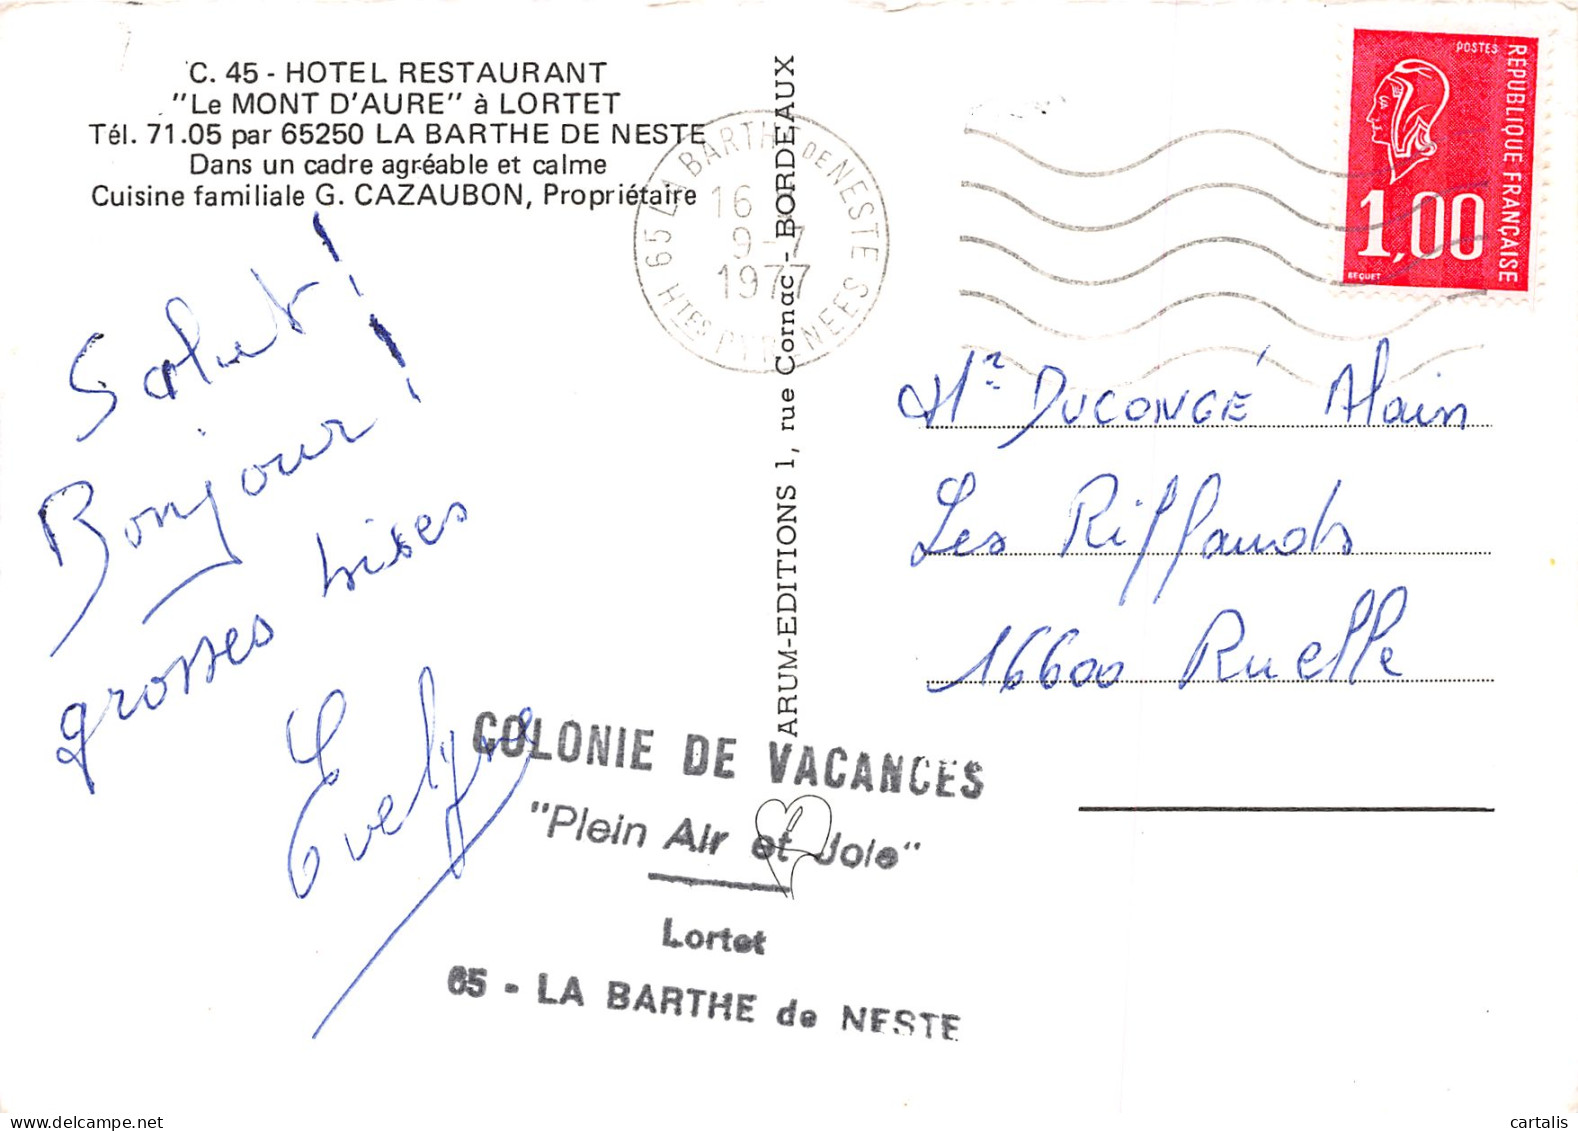 C. 45 - HOTEL RESTAURANT
"Le MONT D'AURE" à LORTET
Tél. 71.05 par 65250 LA BARTHE DE NESTE
Dans un cadre agréable et calme
Cuisine familiale G. CAZAUBON, Propriétaire
Salut !
Bonjour !
grosses bises
Evelyne
65 LA BARTHE DE NESTE
16 H
9-7
1977
HTES PYRENEES
ARUM-EDITIONS 1, rue Cornac - BORDEAUX
POSTES
REPUBLIQUE FRANÇAISE
1,00
BEQUET
Mr DUCONGÉ Alain
Les Riffauds
16600 Ruelle
COLONIE DE VACANCES
"Plein Air et Joie"
Lortet
65 - LA BARTHE de NESTE
cartalis